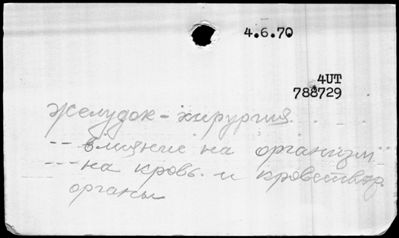 4.6.70
4UT
788729
Желудок - хирургия.
-- влияние на организм
--- на кровь. и кроветвор.
органы